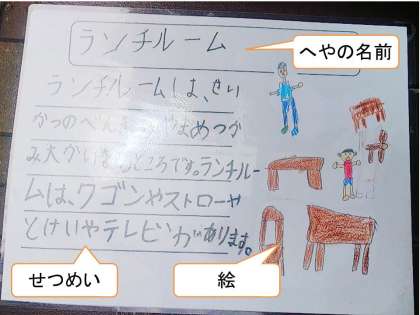 ランチルーム
へやの名前
ランチルームは、せい
かつのべん
み大かいをするところです。ランチルー
ムは、ワゴンやストローや
とけいやテレビがあります。
せつめい
絵